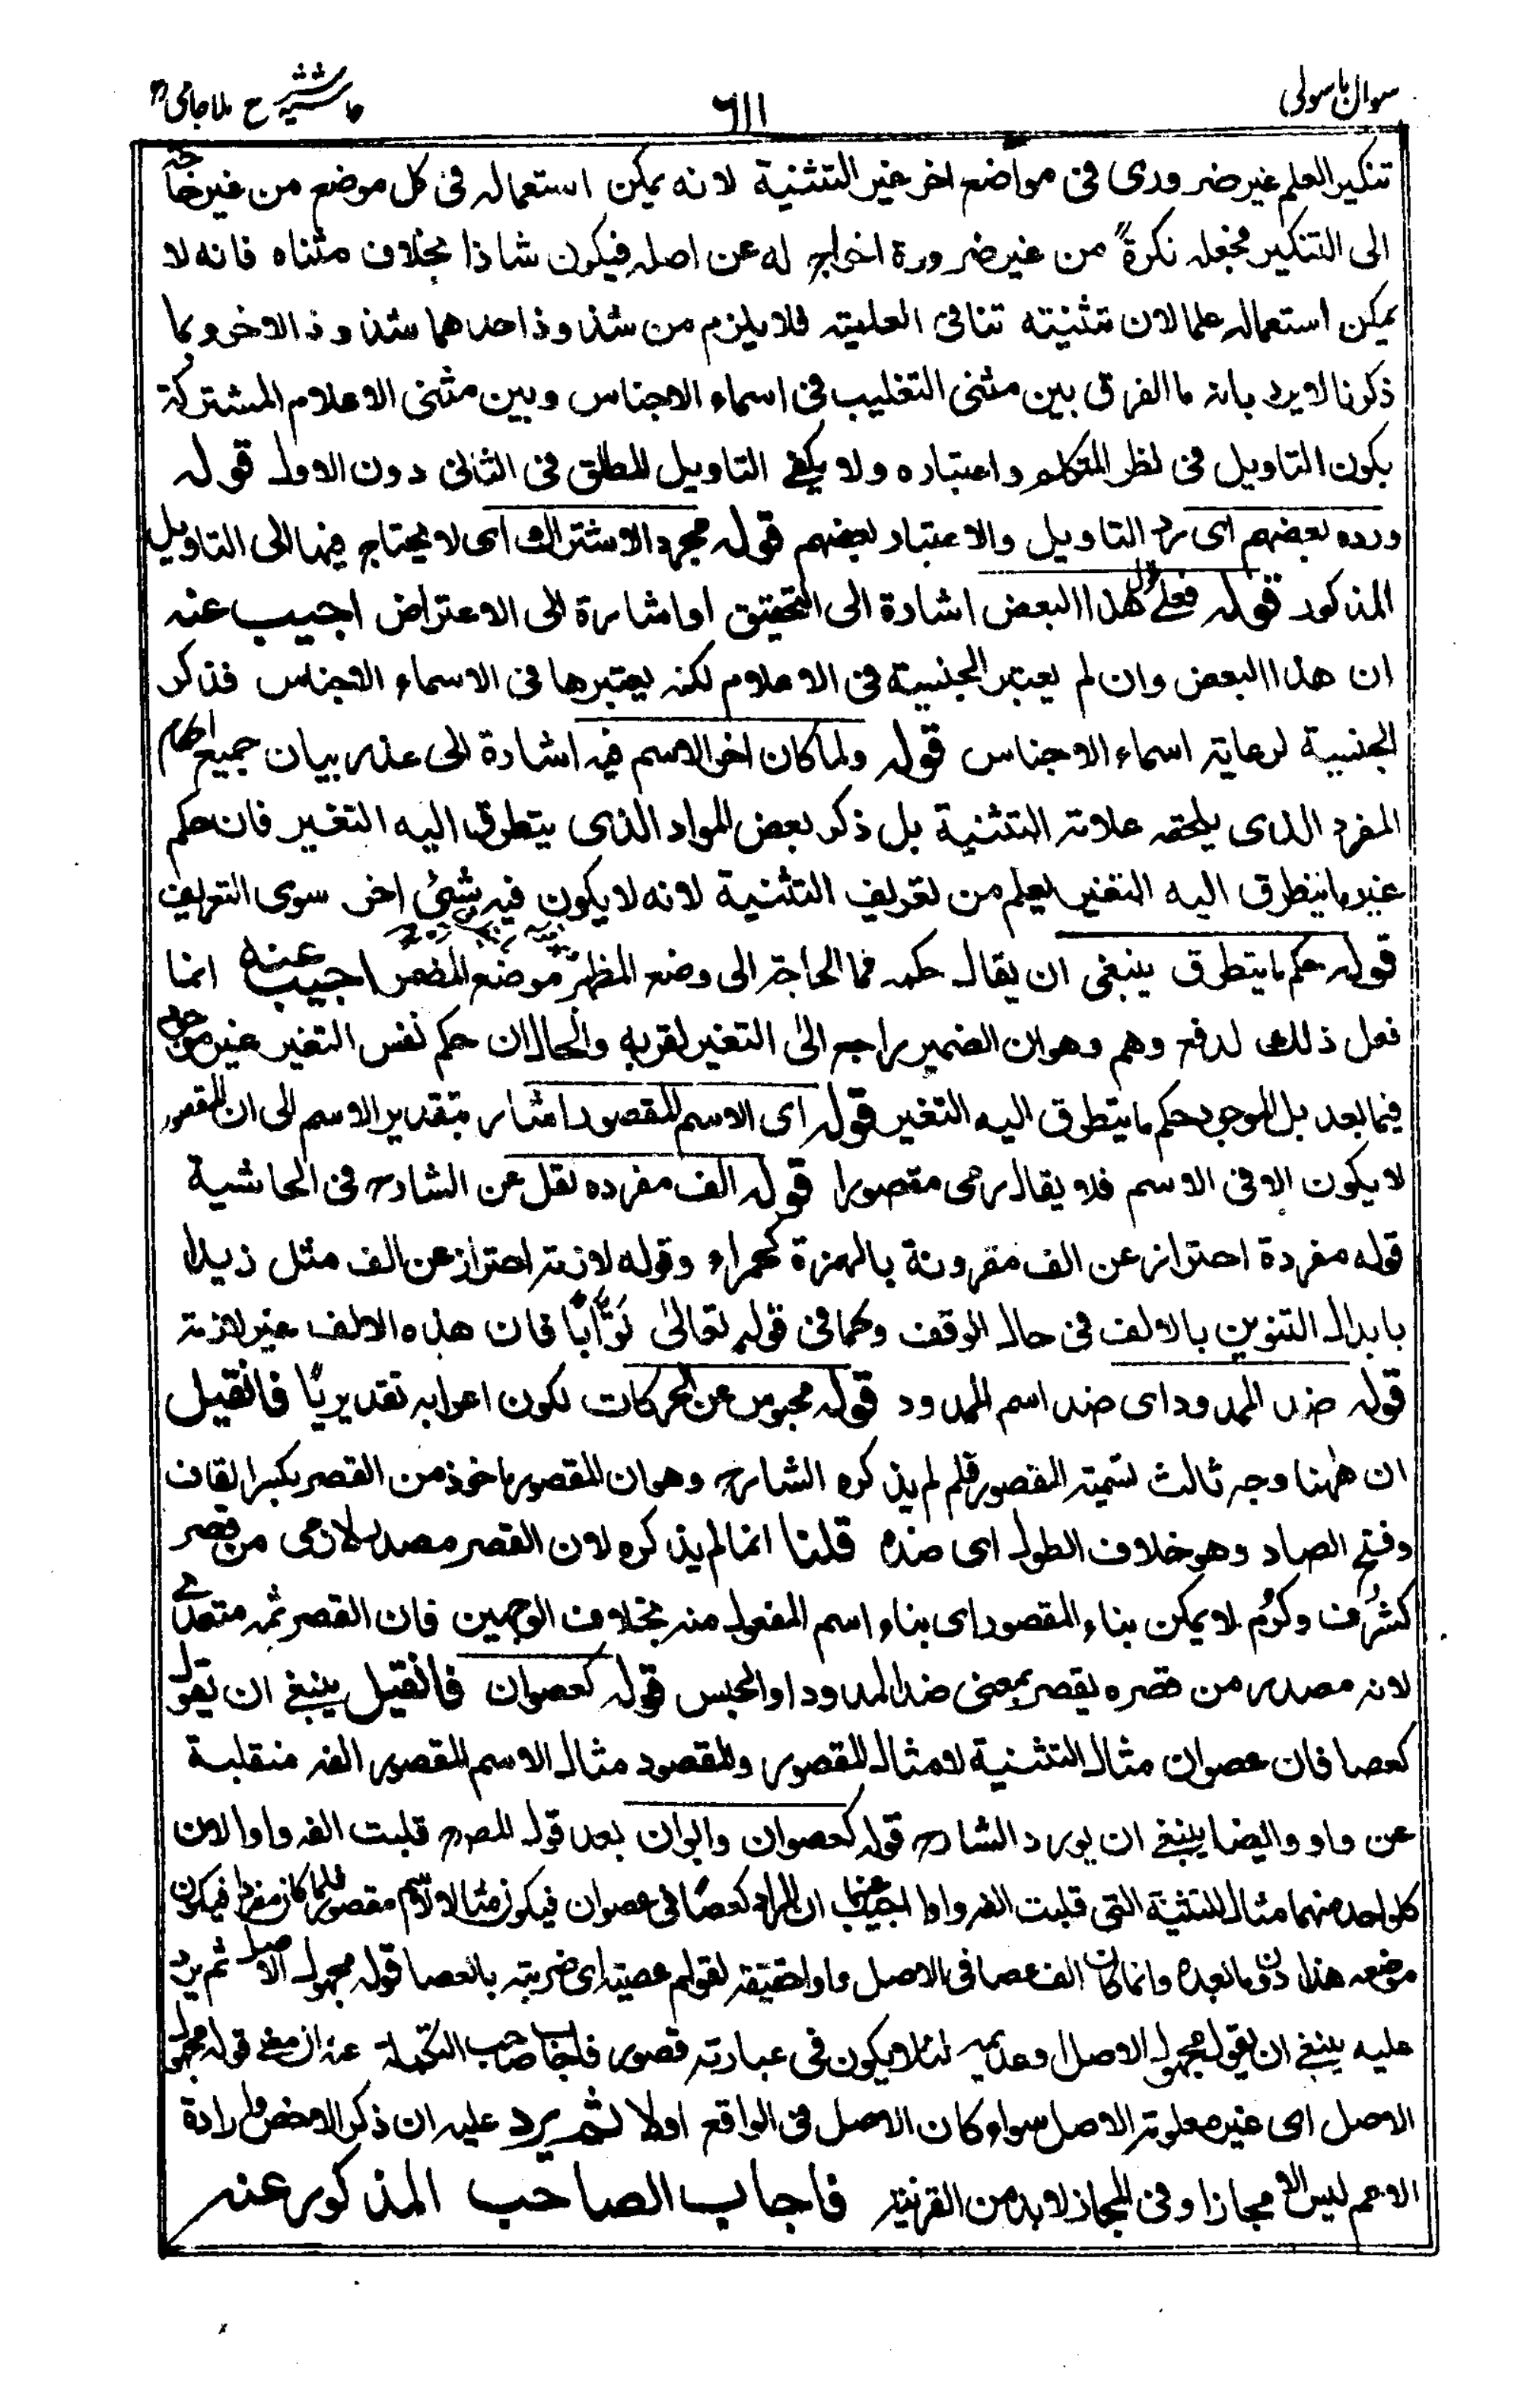 سوال باسولی ٦١١ حاشیہ شرح ملا جامی
تنكير العلم غير ضرورى فى مواضع اخر غير التثنية لانه يمكن استعماله فى كل موضع من غير حاجة
الى التنكير فجعله نكرةً من غير ضرورة اخراج له عن اصله فيكون شاذا بخلاف مثناه فانه لا
يمكن استعماله علما لان تثنيته تنافى العلمية فلا يلزم من شذوذ احدهما شذوذ الاخر وبما
ذكرنا لا يرد بانه ما الفرق بين مثنى التغليب فى اسماء الاجناس وبين مثنى الاعلام المشتركة
بكون التاويل فى نظر المتكلم واعتباره ولا يكفى التاويل المطلق فى الثانى دون الاول قوله
ورده بعضهم اى رد التاويل والاعتبار بعضهم قوله مجرد الاشتراك اى لا يحتاج فيها الى التاويل
المذكور قوله فعلى قول هذا البعض اشارة الى التحقيق او اشارة الى الاعتراض اجيب عنه
ان هذا البعض وان لم يعتبر الجنسية فى الاعلام لكنه يعتبرها فى الاسماء الاجناس فذكر
الجنسية لرعاية اسماء الاجناس قوله ولما كان اخر الاسم فيه اشارة الى عذر بيان جميع احكام
المفرد الذى يلحقه علامة التثنية بل ذكر بعض المواد الذى يتطرق اليه التغير فان حكم
غير ما يتطرق اليه التغير يعلم من تعريف التثنية لانه لا يكون فيه شئ اخر سوى التعريف
قوله حكم ما يتطرق ينبغى ان يقال حكمه فما الحاجة الى وضع المظهر موضع المضمر اجيب عنه انما
فعل ذلك لدفع وهم وهو ان الضمير راجع الى التغير لقربه والحال ان حكم نفس التغير غير موجود
فيما بعد بل الموجود حكم ما يتطرق اليه التغير قوله اى الاسم المقصور اشار بتقدير الاسم الى ان المقصور
لا يكون الا فى الاسم فلا يقال رمى مقصورا قوله الف مفرده نقل عن الشارح فى الحاشية
قوله مفردة احتراز عن الف مقرونة بالهمزة كحمراء وقوله لازمة احتراز عن الف مثل زيدا
بابدال التنوين بالالف فى حال الوقف وكما فى قوله تعالى تَوَّابًا فان هذه الالف غير لازمة
قوله ضد الممدود اى ضد اسم الممدود قوله محبوس عن الحركات لكون اعرابه تقديريًا فان قيل
ان ههنا وجه ثالث لتسمية المقصور فلم لم يذكره الشارح وهو ان المقصور ماخوذ من القصر بكسر القاف
وفتح الصاد وهو خلاف الطول اى ضده قلنا انما لم يذكره لان القصر مصدر لازمى من قصر
كشرُف وكرُم لا يمكن بناء المقصور اى بناء اسم المفعول منه بخلاف الوجهين فان القصر ثمه متعدى
لانه مصدر من قصره يقصر بمعنى ضد الممدود او الحبس قوله كعصوان فان قيل ينبغى ان يقول
كعصا فان عصوان مثال التثنية لا مثال المقصور والمقصود مثال الاسم المقصور الفه منقلبة
عن واو وايضا ينبغى ان يورد الشارح قوله كعصوان وابوان بعد قول المصرح قلبت الفه واوا لان
كل واحد منهما مثال للتثنية التى قلبت الفه واوا اجيب عنهما ان المراد كعصًا فى عصوان فيكون مثالا لاسم مقصور فلما كان مفردا فيكون
موضعه هذا دون ما بعده وانما كان الف عصا فى الاصل واوا حقيقة لقولهم عصيته اى ضربته بالعصا قوله مجهول الاصل ثم يرد
عليه ينبغى ان يقول مجهول الاصل او عديمه لئلا يكون فى عبارته قصور فاجاب صاحب التكملة عنه ان معنى قوله مجهول
الاصل اى غير معلومة الاصل سواء كان الاصل فى الواقع اولا ثم يرد عليه ان ذكر الاخص وارادة
الاعم ليس الا مجازا وفى المجاز لا بد من القرينة فاجاب الصاحب المذكور عنه